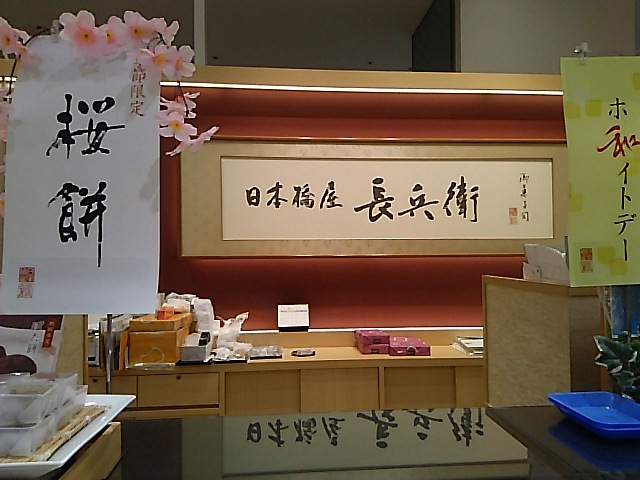 季節限定
桜餅
日本橋屋長兵衛
御菓子司
ホ和イトデー